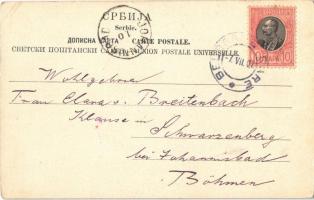 СРБИЈА
Serbie.
ДОПИСНА КАРТА CARTE POSTALE.
СВЕТСКИ ПОШТАНСКИ САВЕЗ UNION POSTALE UNIVERSELLE.
10
Wohlgeboren
Frau Clara v. Breitenbach
Klause in
Schwarzenberg
bei Johannisbad
Böhmen